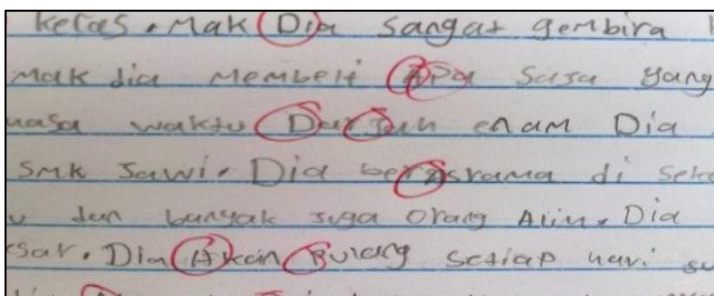 kelas. Mak Dia sangat gembira
Mak dia Membeli APa Saja yang
masa waktu DarJah enam Dia
SMK Jawi. Dia berAsrama di Sek
dan banyak Juga Orang Alim. Dia
esar. Dia AKan Pulang Setiap hari